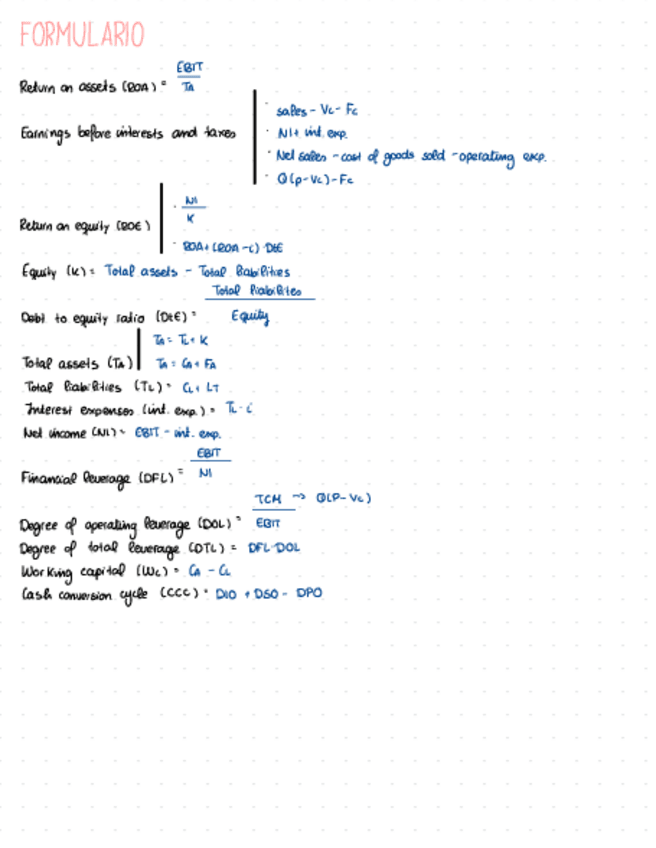 FORMULARIO
Return on assets (ROA) = EBIT / TA
Earnings before interests and taxes
· sales - Vc - Fc
· NI + int. exp.
· Net sales - cost of goods sold - operating exp.
· Q(p-Vc)-Fc
Return on equity (ROE)
· NI / K
· ROA+(ROA-i)·DtE
Equity (K) = Total assets - Total liabilities
Debt to equity ratio (DtE) = Total liabilities / Equity
Total assets (TA)
TA = TL + K
TA = CA + FA
Total liabilities (TL) = CL + LT
Interest expenses (int. exp.) = TL · i
Net income (NI) = EBIT - int. exp.
Financial leverage (DFL) = EBIT / NI
Degree of operating leverage (DOL) = TCM → Q(P-Vc) / EBIT
Degree of total leverage (DTL) = DFL·DOL
Working capital (Wc) = CA - CL
Cash conversion cycle (CCC) = DIO + DSO - DPO